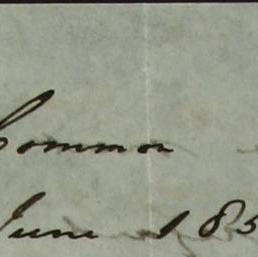 Common
June 185